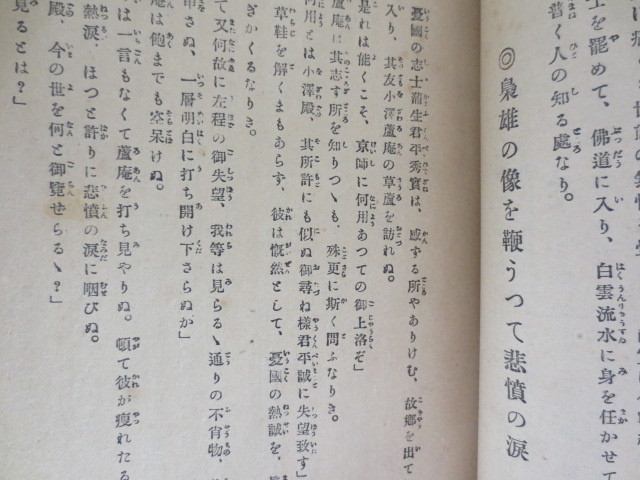 士を罷めて、佛道に入り、白雲流水に身を任かせて
普く人の知る處なり。
◎梟雄の像を鞭うつて悲憤の涙
憂國の志士蒲生君平秀實は、感ずる所やありけむ、故鄕を出で
入り、其友小澤蘆庵の草廬を訪れぬ。
是れは能くこそ、京師に何用あつての御上洛ぞ」
蘆庵は其志す所を知りつゝも、殊更に斯く問ふなりき。
何用とは小澤殿、其所許にも似ぬ御尋ね樣君平誠に失望致す」
草鞋を解くまもあらず、彼は慨然として、憂國の熱誠を、
ぎかくるなりき。
て又何故に左程の御失望、我等は見らるゝ通りの不肖物、
申さぬ、一層明白に打ち開け下さらぬか」
庵は飽までも空呆けぬ。
は一言もなくて蘆庵を打ち見やりぬ。頓て彼が瘦れたる
熱淚、ほつと許りに悲憤の淚に咽びぬ。
殿、今の世を何と御覽せらるゝ？」
見るとは？」